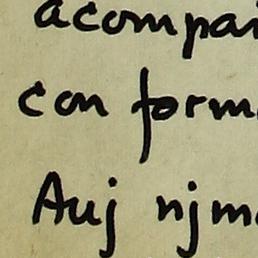 acompai
con forma
Auj njm